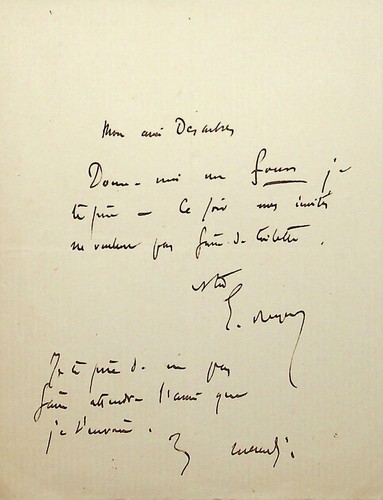 Mon ami Desarbres
Donne-moi un four je
te prie — Ce soir mes invités
ne veulent pas faire de toilette.
E. Reyer
Je te prie de ne pas
faire attendre l'ami que
je t'envoie.